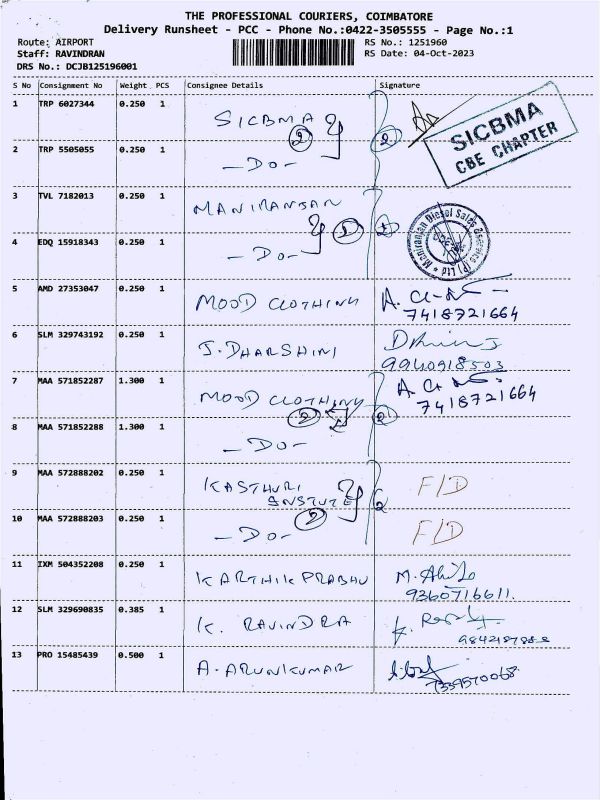 THE PROFESSIONAL COURIERS, COIMBATORE
Delivery Runsheet - PCC - Phone No.:0422-3505555 - Page No.:1
Route: AIRPORT RS No.: 1251960
Staff: RAVINDRAN RS Date: 04-Oct-2023
DRS No.: DCJB125196001
S No Consignment No Weight PCS Consignee Details Signature
1 TRP 6027344 0.250 1 SICBMA
SICBMA
CBE CHAPTER
2 2
2 TRP 5505055 0.250 1 - DO -
3 TVL 7182013 0.250 1 MANIRANJAN
Maniranjan Diesel Sales &Service (P) Ltd
4 EDQ 15918343 0.250 1 - DO -
5 AMD 27353047 0.250 1 MOOD CLOTHING
7418721664
6 SLM 329743192 0.250 1 J. DHARSHINI
9940918503
7 MAA 571852287 1.300 1 MOOD CLOTHING
7418721664
2 2
8 MAA 571852288 1.300 1 - DO -
9 MAA 572888202 0.250 1 KASTHURI F/D
INSTUTE
2 2
10 MAA 572888203 0.250 1 - DO - F/D
11 IXM 504352208 0.250 1 KARTHIK PRABHU
9360716611.
12 SLM 329690835 0.385 1 K. RAVINDRA
13 PRO 15485439 0.500 1 A. ARUNKUMAR
7339570068